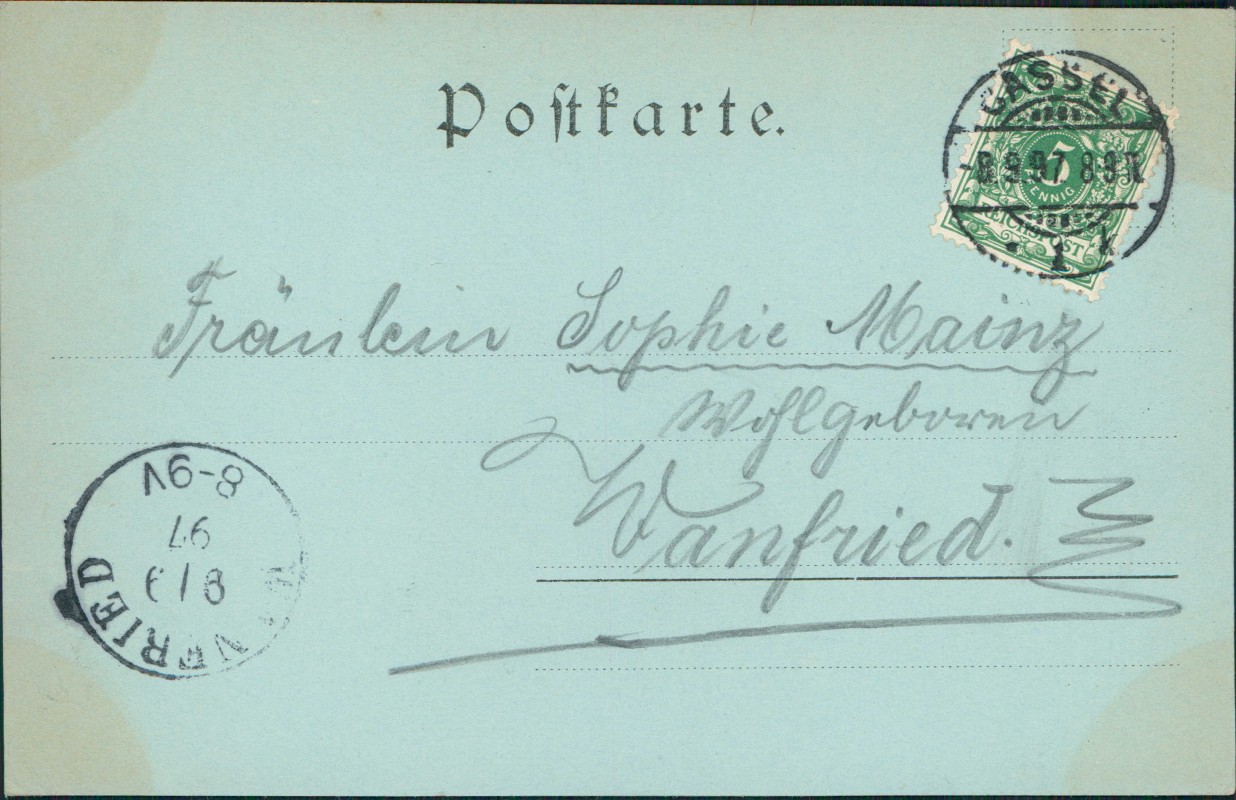 Postkarte.
CASSEL
8.9.97. 8-9 N.
5
PFENNIG
REICHSPOST
* 1 k
Fräulein Sophie Mainz
Wohlgeboren
Wanfried.
WANFRIED
9/9
97
8-9V